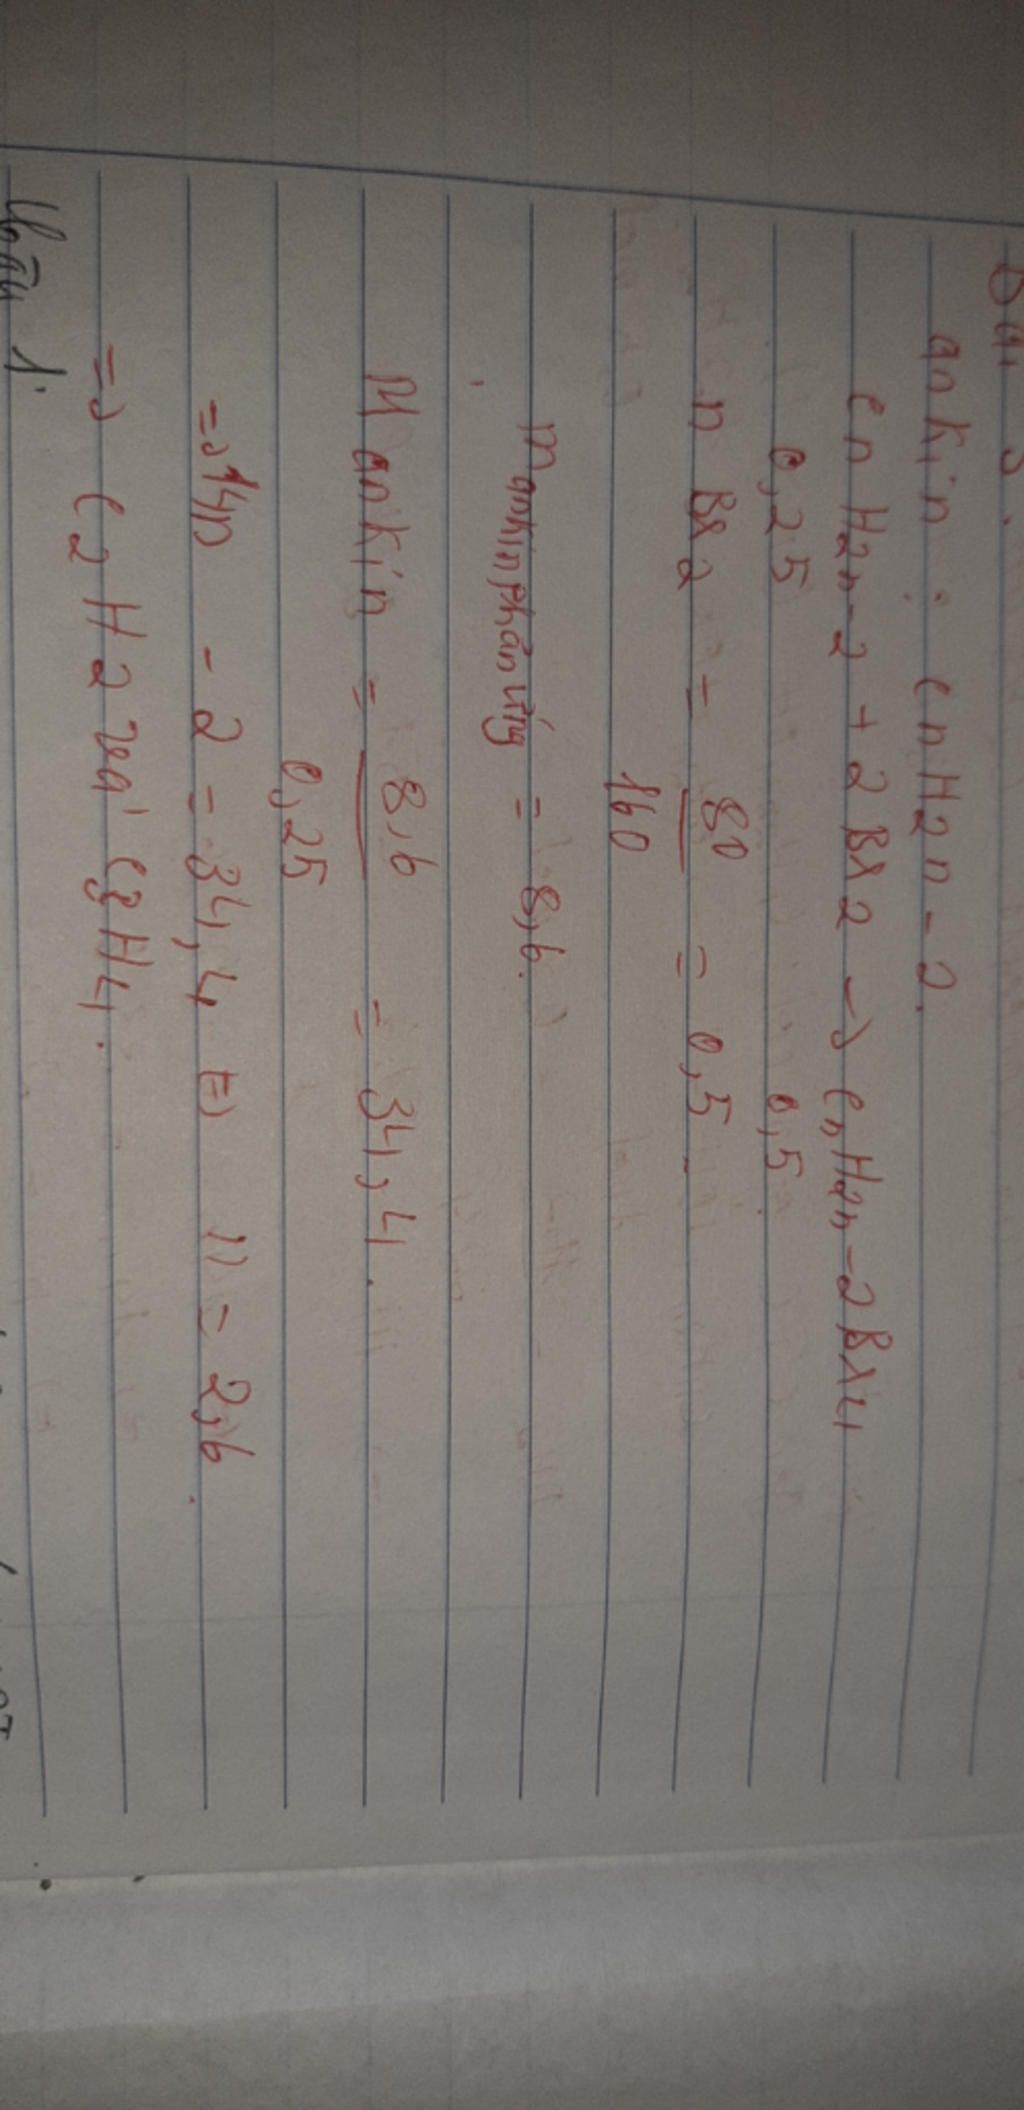 Bài 3.
ankin : CnH2n-2.
CnH2n-2 + 2Br2 → CnH2n-2Br4
0,25 0,5
n Br2 = 80/160 = 0,5.
m ankin phản ứng = 8,6.
M ankin = 8,6/0,25 = 34,4.
=> 14n - 2 = 34,4 <=> n = 2,6.
=> C2H2 và C3H4.